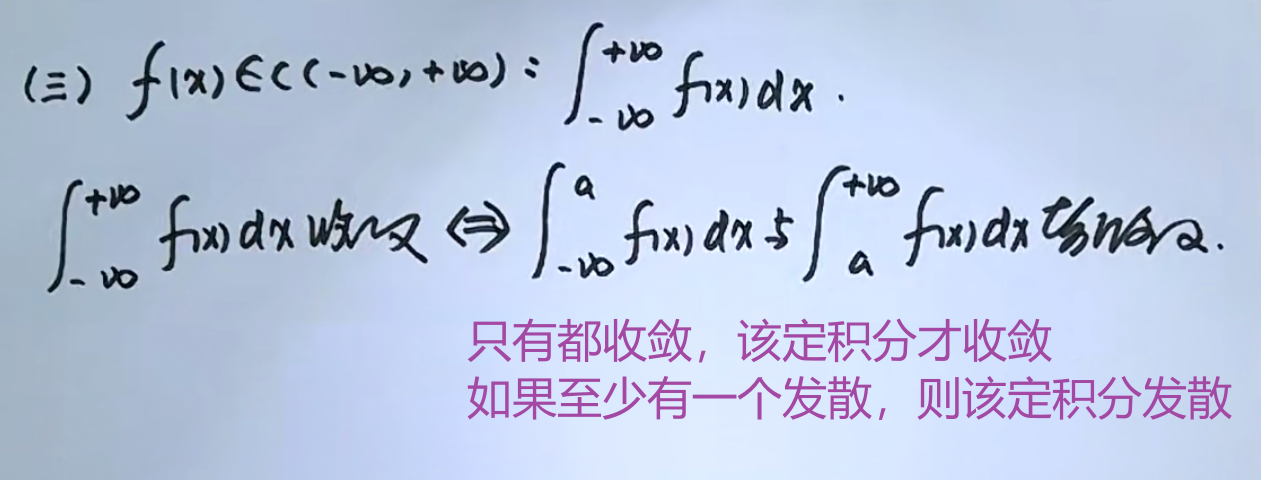 (三) f(x)∈C(-∞,+∞): ∫_{-∞}^{+∞} f(x)dx.
∫_{-∞}^{+∞} f(x)dx 收敛 ⇔ ∫_{-∞}^{a} f(x)dx 与 ∫_{a}^{+∞} f(x)dx 均收敛.
只有都收敛，该定积分才收敛
如果至少有一个发散，则该定积分发散